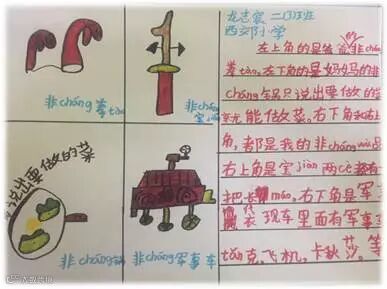 非cháng拳tào
非cháng宝jiàn
说出要做的菜
非cháng锅
非cháng军事车
龙志宸 二(3)班
西郊小学
左上角的是我说的非cháng
拳tào,左下角的是妈妈的非
cháng锅只说出要做的
菜就能做菜。右下角和右上
角,都是我的非cháng品
右上角是宝jiàn两cè
把长máo,右下角是军
代 现车里面有军事
tǎn克,飞机,卡秋莎,等